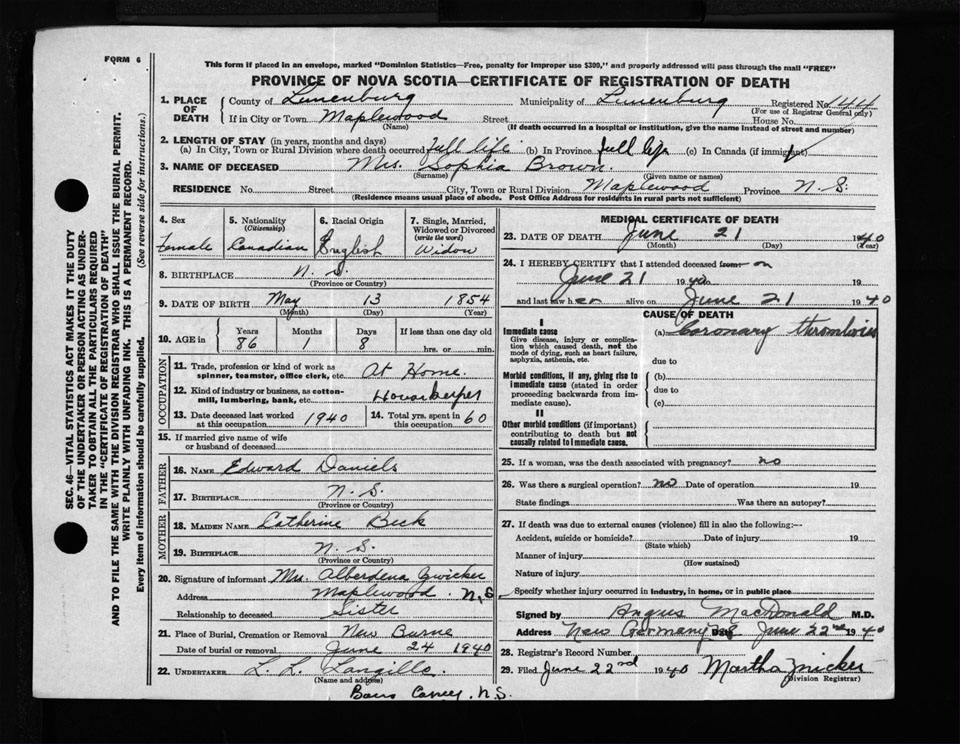 FORM 6
This form if placed in an envelope, marked "Dominion Statistics—Free, penalty for improper use $300," and properly addressed will pass through the mail "FREE"
PROVINCE OF NOVA SCOTIA—CERTIFICATE OF REGISTRATION OF DEATH
1. PLACE OF DEATH County of Lunenburg Municipality of Lunenburg Registered No. 144
(For use of Registrar General only)
If in City or Town Maplewood Street House No.
(Name) (If death occurred in a hospital or institution, give the name instead of street and number)
2. LENGTH OF STAY (in years, months and days)
(a) In City, Town or Rural Division where death occurred full life (b) In Province full life (c) In Canada (if immigrant)
3. NAME OF DECEASED Mrs. Sophia Brown.
(Surname) (Given name or names)
RESIDENCE No. Street City, Town or Rural Division Maplewood Province N.S.
(Residence means usual place of abode. Post Office Address for residents in rural parts not sufficient)
4. Sex Female
5. Nationality (Citizenship) Canadian
6. Racial Origin English
7. Single, Married, Widowed or Divorced (write the word) Widow
8. BIRTHPLACE N. S.
(Province or Country)
9. DATE OF BIRTH May 13 1854
(Month) (Day) (Year)
10. AGE in Years Months Days If less than one day old
86 1 8 hrs. or min.
OCCUPATION
11. Trade, profession or kind of work as spinner, teamster, office clerk, etc. At Home.
12. Kind of industry or business, as cotton-mill, lumbering, bank, etc. Housekeeper
13. Date deceased last worked at this occupation 1940
14. Total yrs. spent in this occupation 60
15. If married give name of wife or husband of deceased
FATHER
16. NAME Edward Daniels
17. BIRTHPLACE N. S.
(Province or Country)
MOTHER
18. MAIDEN NAME Catherine Beck
19. BIRTHPLACE N. S.
(Province or Country)
20. Signature of informant Mrs. Alberdena Zwicker
Address Maplewood N,S
Relationship to deceased Sister
21. Place of Burial, Cremation or Removal New Burne
Date of burial or removal June 24 1940
22. UNDERTAKER L. L. Langille
(Name and address)
N.S.
MEDICAL CERTIFICATE OF DEATH
23. DATE OF DEATH June 21 1940
(Month) (Day) (Year)
24. I HEREBY CERTIFY that I attended deceased from on
June 21 1940 to
and last saw her alive on June 21 1940
CAUSE OF DEATH
I
Immediate cause
Give disease, injury or complication which caused death, not the mode of dying, such as heart failure, asphyxia, asthenia, etc.
(a) Coronary thrombosis
due to
Morbid conditions, if any, giving rise to immediate cause (stated in order proceeding backwards from immediate cause).
(b)
due to
(c)
II
Other morbid conditions (if important) contributing to death but not causally related to immediate cause.
25. If a woman, was the death associated with pregnancy? no
26. Was there a surgical operation? no Date of operation 19
State findings Was there an autopsy?
27. If death was due to external causes (violence) fill in also the following:—
Accident, suicide or homicide? Date of injury 19
(State which)
Manner of injury
(How sustained)
Nature of injury
Specify whether injury occurred in industry, in home, or in public place
Signed by Angus MacDonald M.D.
Address New Germany NS Date June 22nd 1940
28. Registrar's Record Number
29. Filed June 22nd 1940 Martha Zwicker
(Division Registrar)
SEC. 46—VITAL STATISTICS ACT MAKES IT THE DUTY
OF THE UNDERTAKER OR PERSON ACTING AS UNDER-
TAKER TO OBTAIN ALL THE PARTICULARS REQUIRED
IN THE "CERTIFICATE OF REGISTRATION OF DEATH"
AND TO FILE THE SAME WITH THE DIVISION REGISTRAR WHO SHALL ISSUE THE BURIAL PERMIT.
WRITE PLAINLY WITH UNFADING INK. THIS IS A PERMANENT RECORD.
Every item of information should be carefully supplied. (See reverse side for instructions.)